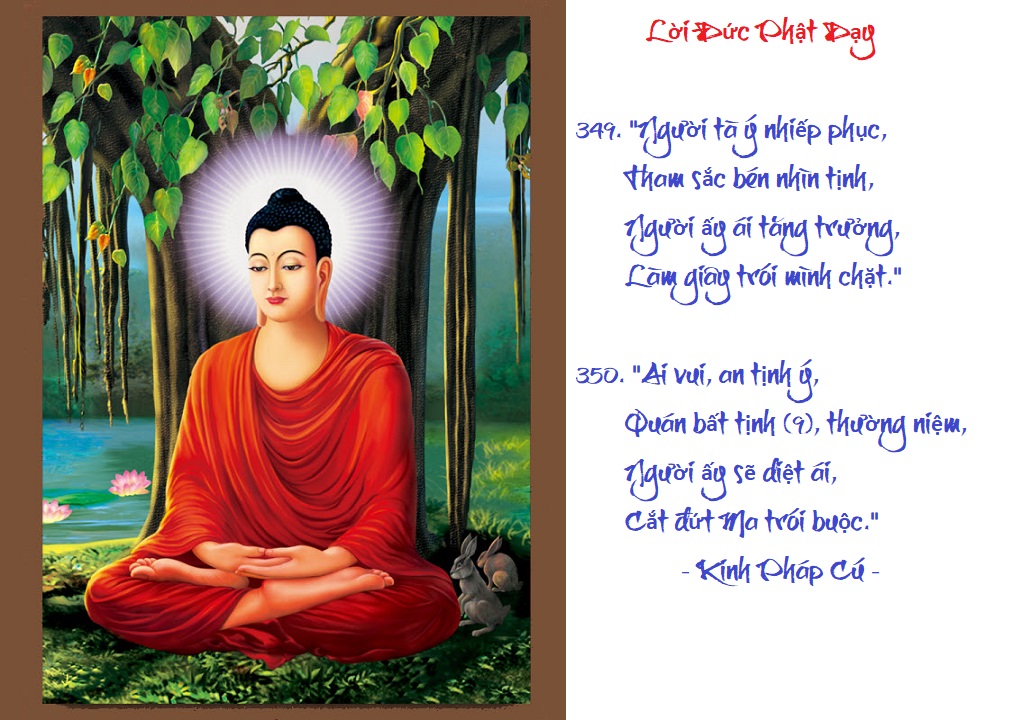 Lời Đức Phật Dạy
349. "Người tà ý nhiếp phục,
Tham sắc bén nhìn tịnh,
Người ấy ái tăng trưởng,
Làm giây trói mình chặt."
350. "Ai vui, an tịnh ý,
Quán bất tịnh (9), thường niệm,
Người ấy sẽ diệt ái,
Cắt đứt Ma trói buộc."
- Kinh Pháp Cú -